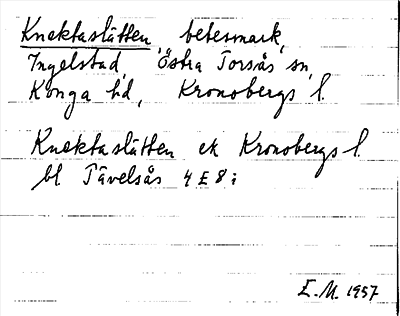 Knektaslätten, betesmark,
Ingelstad, Östra Torsås sn,
Konga hd, Kronobergs l.
Knektaslätten ek Kronobergs l.
bl Tävelsås 4 E 8 i
E.M. 1957